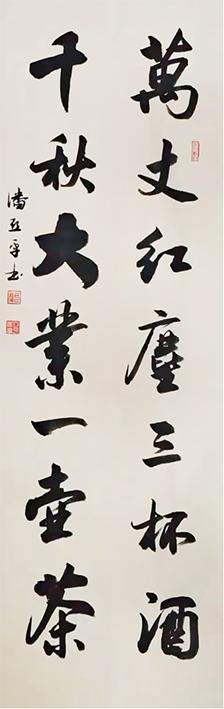 萬丈紅塵三杯酒
千秋大業一壺茶
潘亚平书